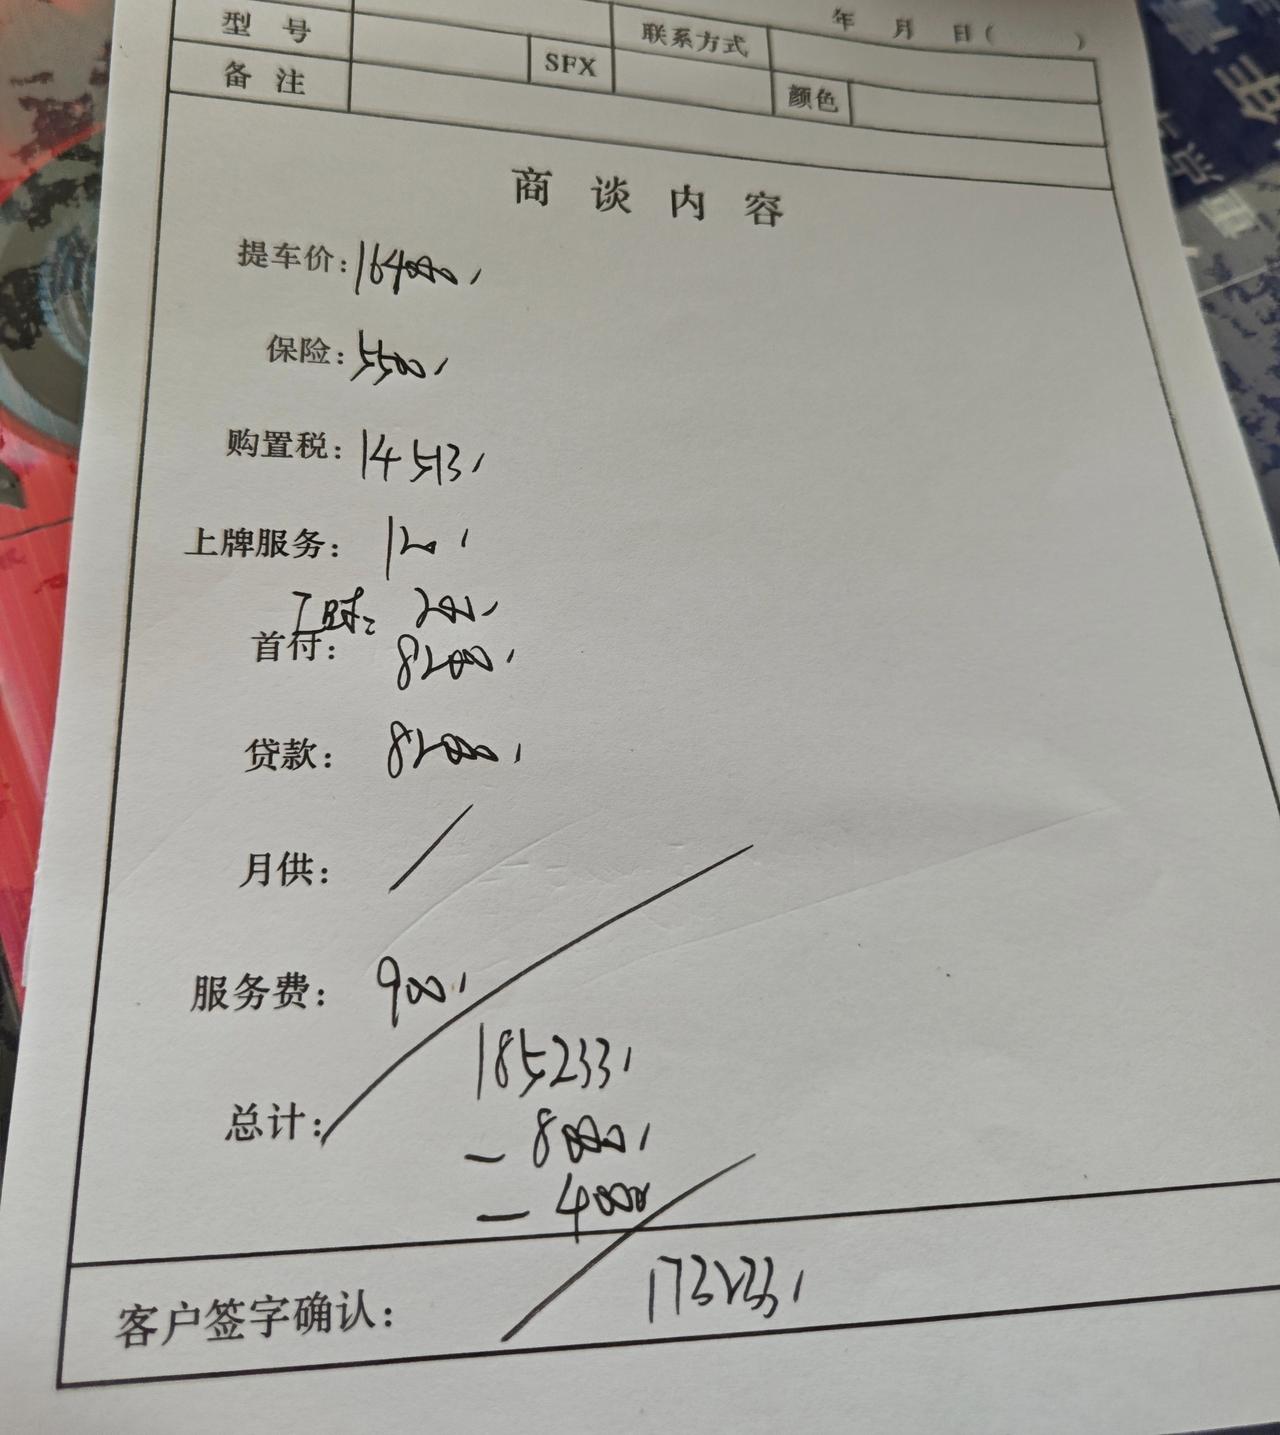 年 月 日( )
型 号 联系方式
备 注 SFX 颜色
商 谈 内 容
提车价: 164000,
保险: 5500,
购置税: 14513,
上牌服务: 120,
工时:
首付: 82000,
贷款: 82000,
月供: /
服务费: 900,
185233,
总计:
- 8000,
- 4000
客户签字确认: 173233,